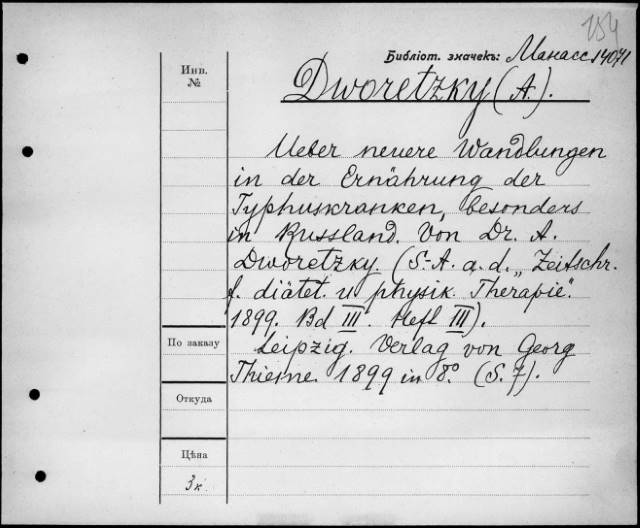 154
Библіот. значекъ: Манасс 14071
Инв.
№
Dworetzky (A.).
Ueber neuere Wandlungen
in der Ernährung der
Typhuskranken, besonders
in Russland. Von Dr. A.
Dworetzky. (S.-A. a. d. „Zeitschr.
f. diätet. u physik. Therapie".
1899. Bd III. Heft III).
По заказу
Leipzig. Verlag von Georg
Thieme. 1899 in 8.° (S. 7).
Откуда
Цѣна
3к.